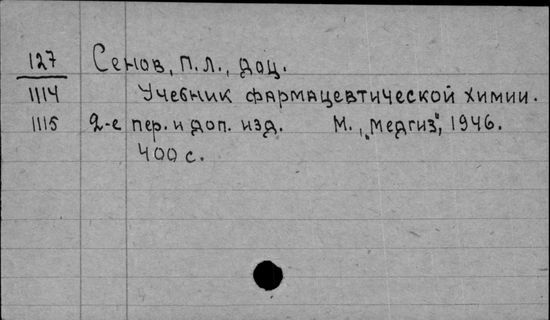 127 Сенов, П.Л., доц.
1114 Учебник фармацевтической химии.
1115 2-е пер. и доп. изд. М., „Медгиз", 1946.
400 с.